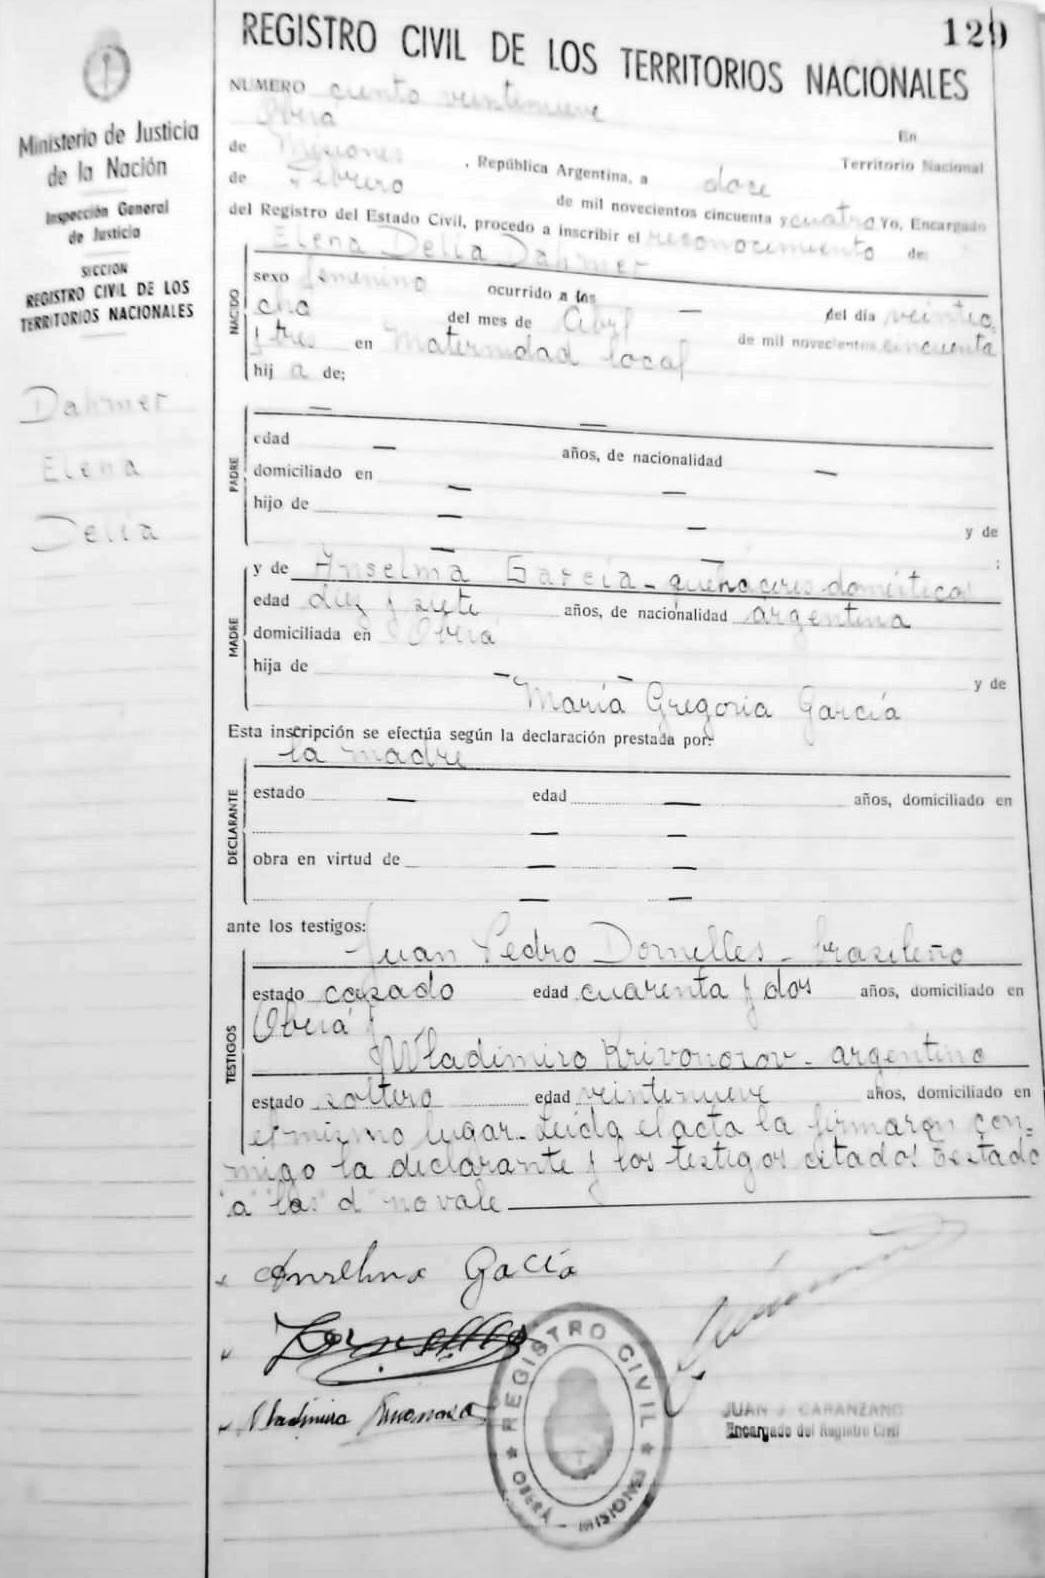 129
REGISTRO CIVIL DE LOS TERRITORIOS NACIONALES
Ministerio de Justicia
de la Nación
Inspección General
de Justicia
SECCION
REGISTRO CIVIL DE LOS
TERRITORIOS NACIONALES
Dahmer
Elena
Delia
NUMERO ciento veintenueve En
Oberá Territorio Nacional
de Misiones, República Argentina, a doce
de Febrero de mil novecientos cincuenta y cuatro Yo, Encargado
del Registro del Estado Civil, procedo a inscribir el reconocimiento de:
Elena Delia Dahmer
NACIDO
sexo femenino ocurrido a las — del día veintio
cho del mes de Abril de mil novecientos cincuenta
y tres en Maternidad local
hij a de;
PADRE
— —
edad — años, de nacionalidad —
domiciliado en — —
hijo de — — y de
— — ;
MADRE
y de Anselma García - quehaceres domésticos
edad diez y siete años, de nacionalidad argentina
domiciliada en Oberá
hija de — — y de
María Gregoria García
Esta inscripción se efectúa según la declaración prestada por:
la madre
DECLARANTE
estado — edad — años, domiciliado en
— —
obra en virtud de — —
— —
ante los testigos:
TESTIGOS
Juan Pedro Dornelles - brasileño
estado casado edad cuarenta y dos años, domiciliado en
Oberá y
Wladimiro Krivonozov - argentino
estado soltero edad veintenueve años, domiciliado en
el mismo lugar - Leída el acta la firmaron con=
migo la declarante y los testigos citados Testado
"a" "las" "d" no vale
Anselma Gacía
Dornelles
Vladimiro
REGISTRO CIVIL
OBERÁ - MISIONES
JUAN J. CARANZANO
Encargado del Registro Civil